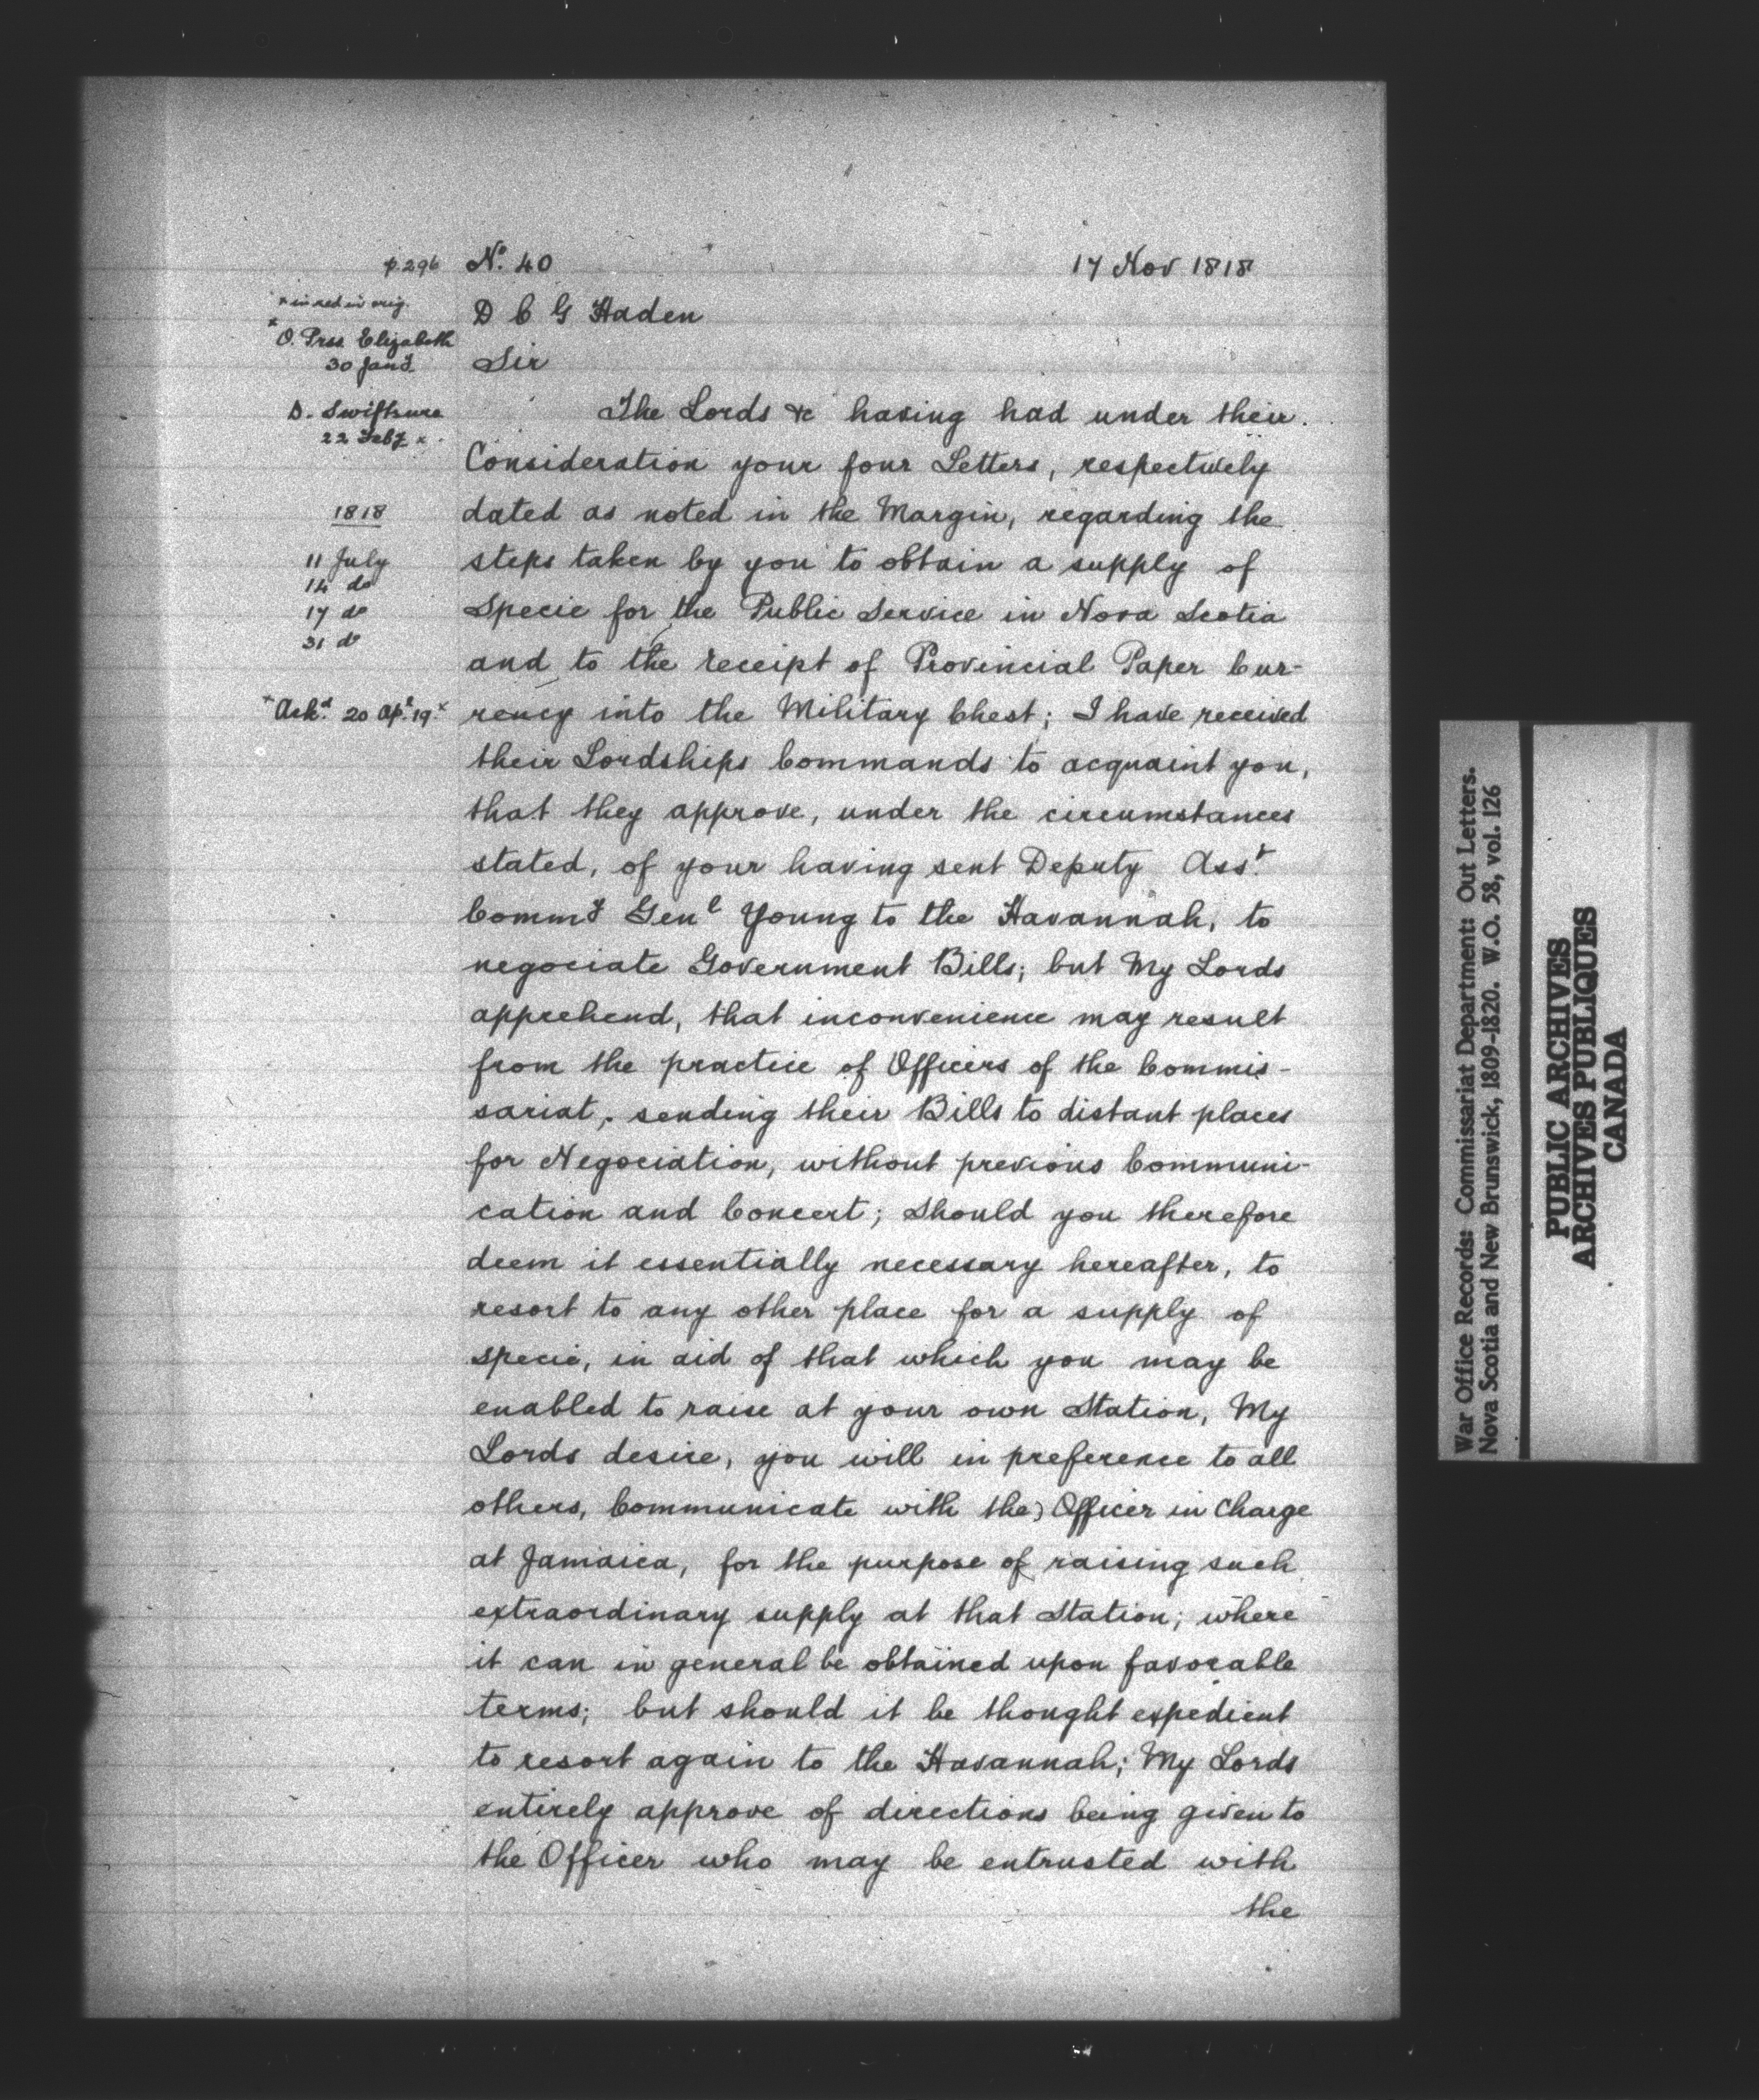 p.296 No. 40 17 Nov 1818
x in red in orig.
D C G Haden
x O. Prss Elizabeth
30 Jany.
Sir
D. Swiftsure
22 Feby x.
The Lords &c having had under their
Consideration your four Letters, respectively
1818
dated as noted in the Margin, regarding the
11 July
steps taken by you to obtain a supply of
14 do
17 do
Specie for the Public Service in Nova Scotia
31 do
and to the receipt of Provincial Paper Cur-
x Ackd. 20 Apl. 19. x
rency into the Military Chest; I have received
their Lordships Commands to acquaint you,
that they approve, under the circumstances
stated, of your having sent Deputy Asst.
Commy Genl Young to the Havannah, to
negociate Government Bills; but My Lords
apprehend, that inconvenience may result
from the practice of Officers of the Commis-
sariat, sending their Bills to distant places
for Negociation, without previous Communi-
cation and Concert; should you therefore
deem it essentially necessary hereafter, to
resort to any other place for a supply of
specie, in aid of that which you may be
enabled to raise at your own Station, My
Lords desire, you will in preference to all
others, Communicate with the Officer in Charge
at Jamaica, for the purpose of raising such
extraordinary supply at that Station; where
it can in general be obtained upon favorable
terms; but should it be thought expedient
to resort again to the Havannah; My Lords
entirely approve of directions being given to
the Officer who may be entrusted with
the
War Office Records: Commissariat Department: Out Letters.
Nova Scotia and New Brunswick, 1809-1820. W.O. 58, vol. 126
PUBLIC ARCHIVES
ARCHIVES PUBLIQUES
CANADA